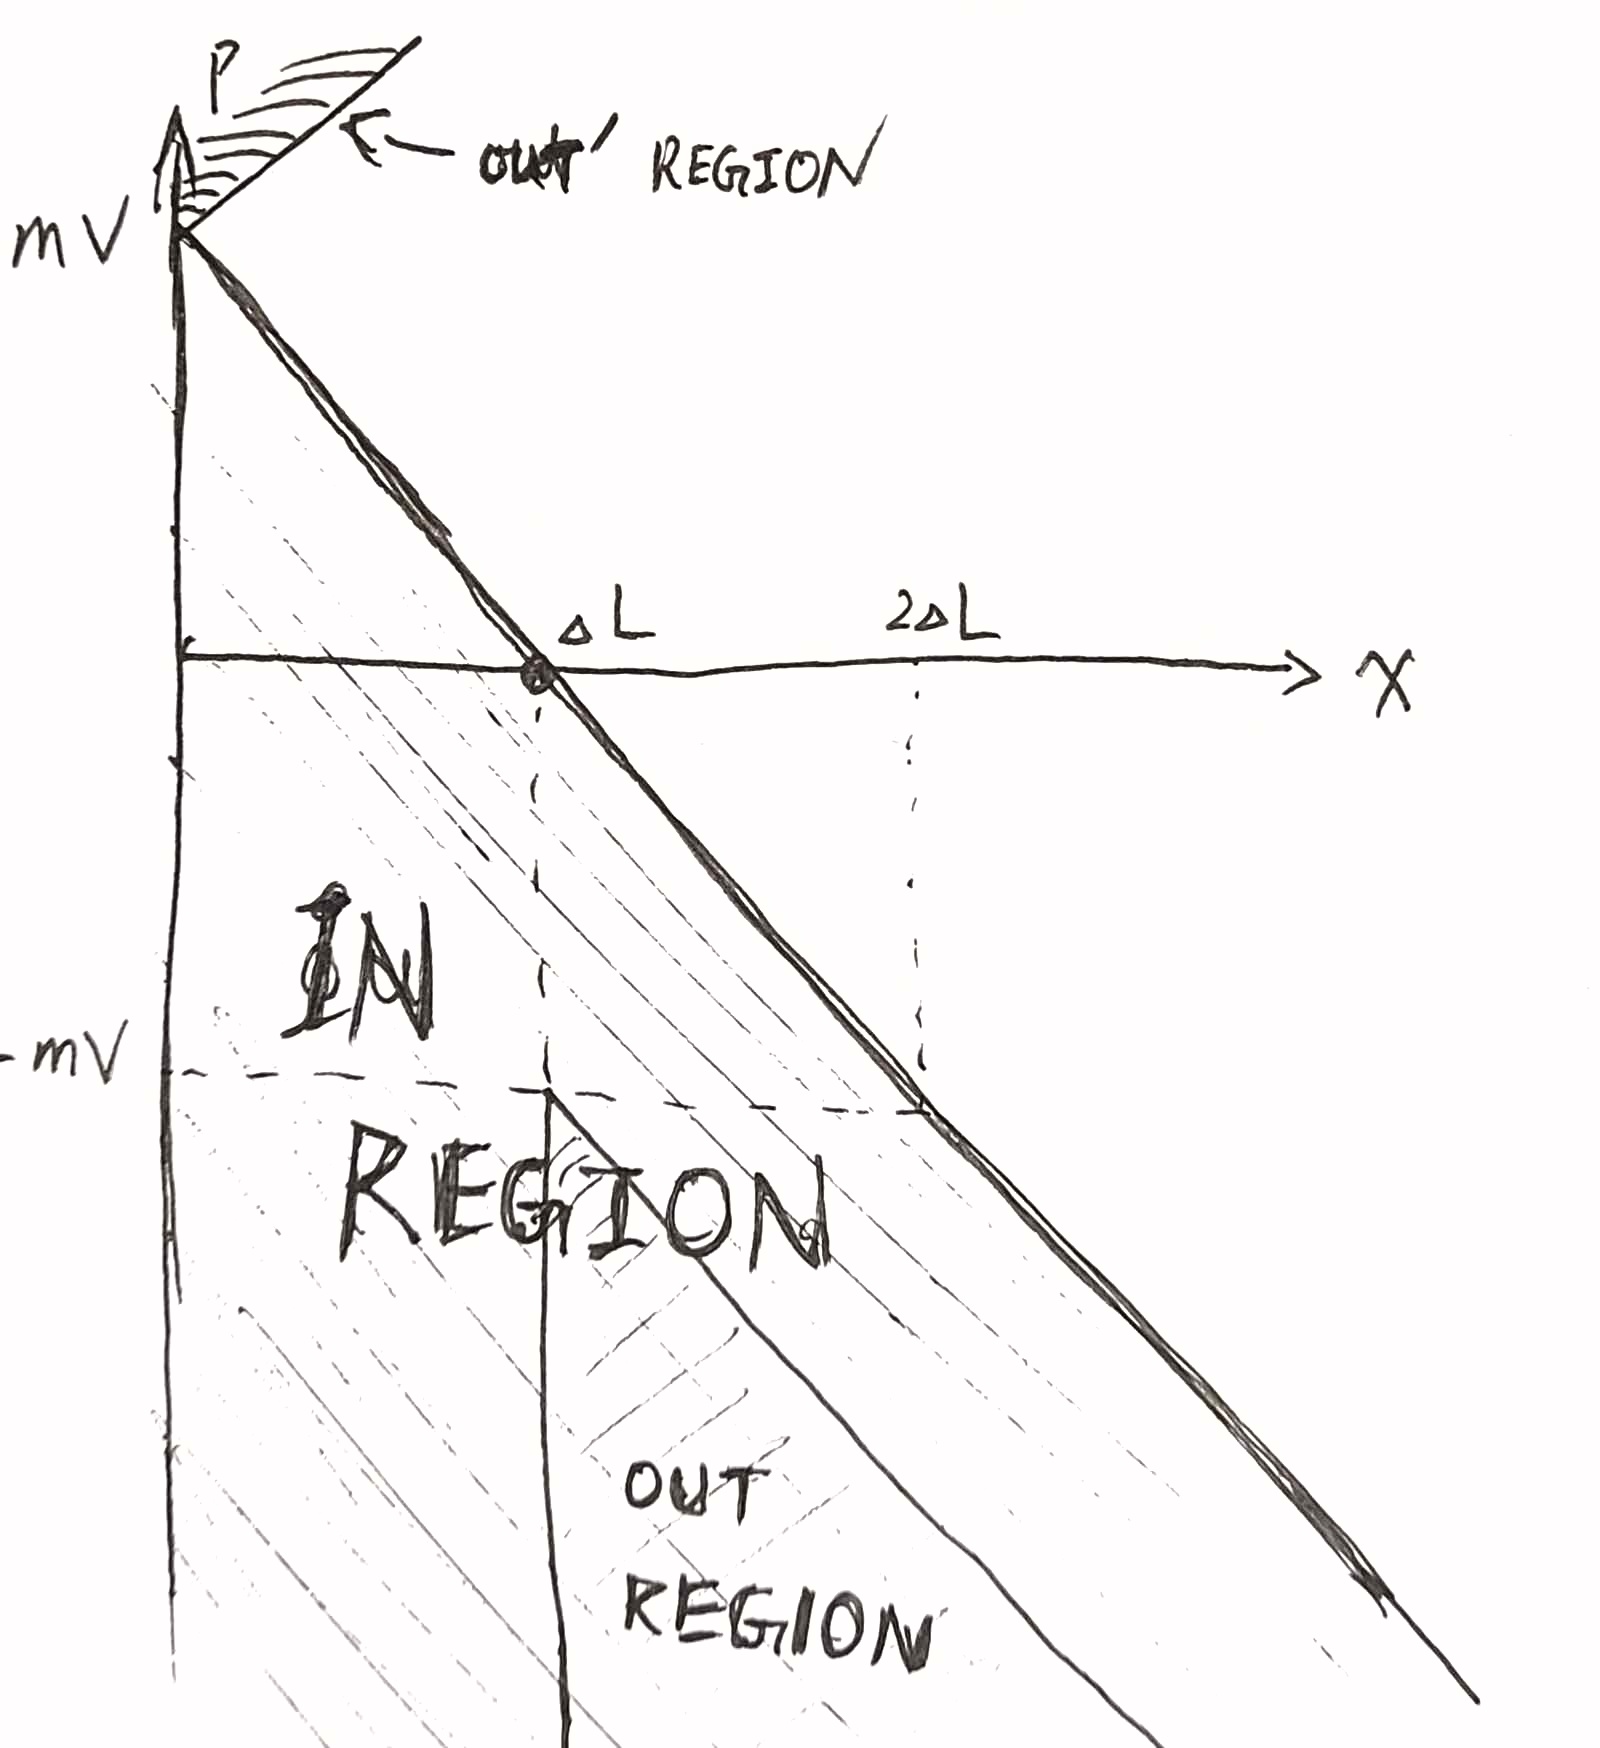 P
OUT' REGION
mV
ΔL
2ΔL
X
IN
-mV
REGION
OUT
REGION